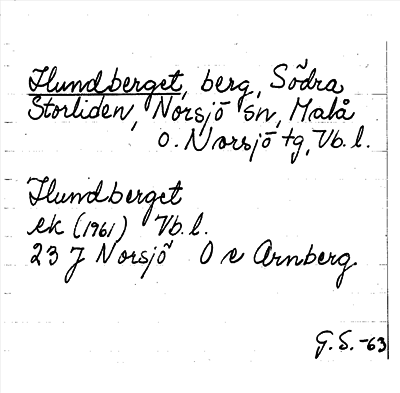 Hundberget, berg, Södra
Storliden, Norsjö sn, Malå
o. Norsjö tg, Vb. l.
Hundberget
ek (1961) Vb. l.
23 J Norsjö O e Arnberg
G. S. -63